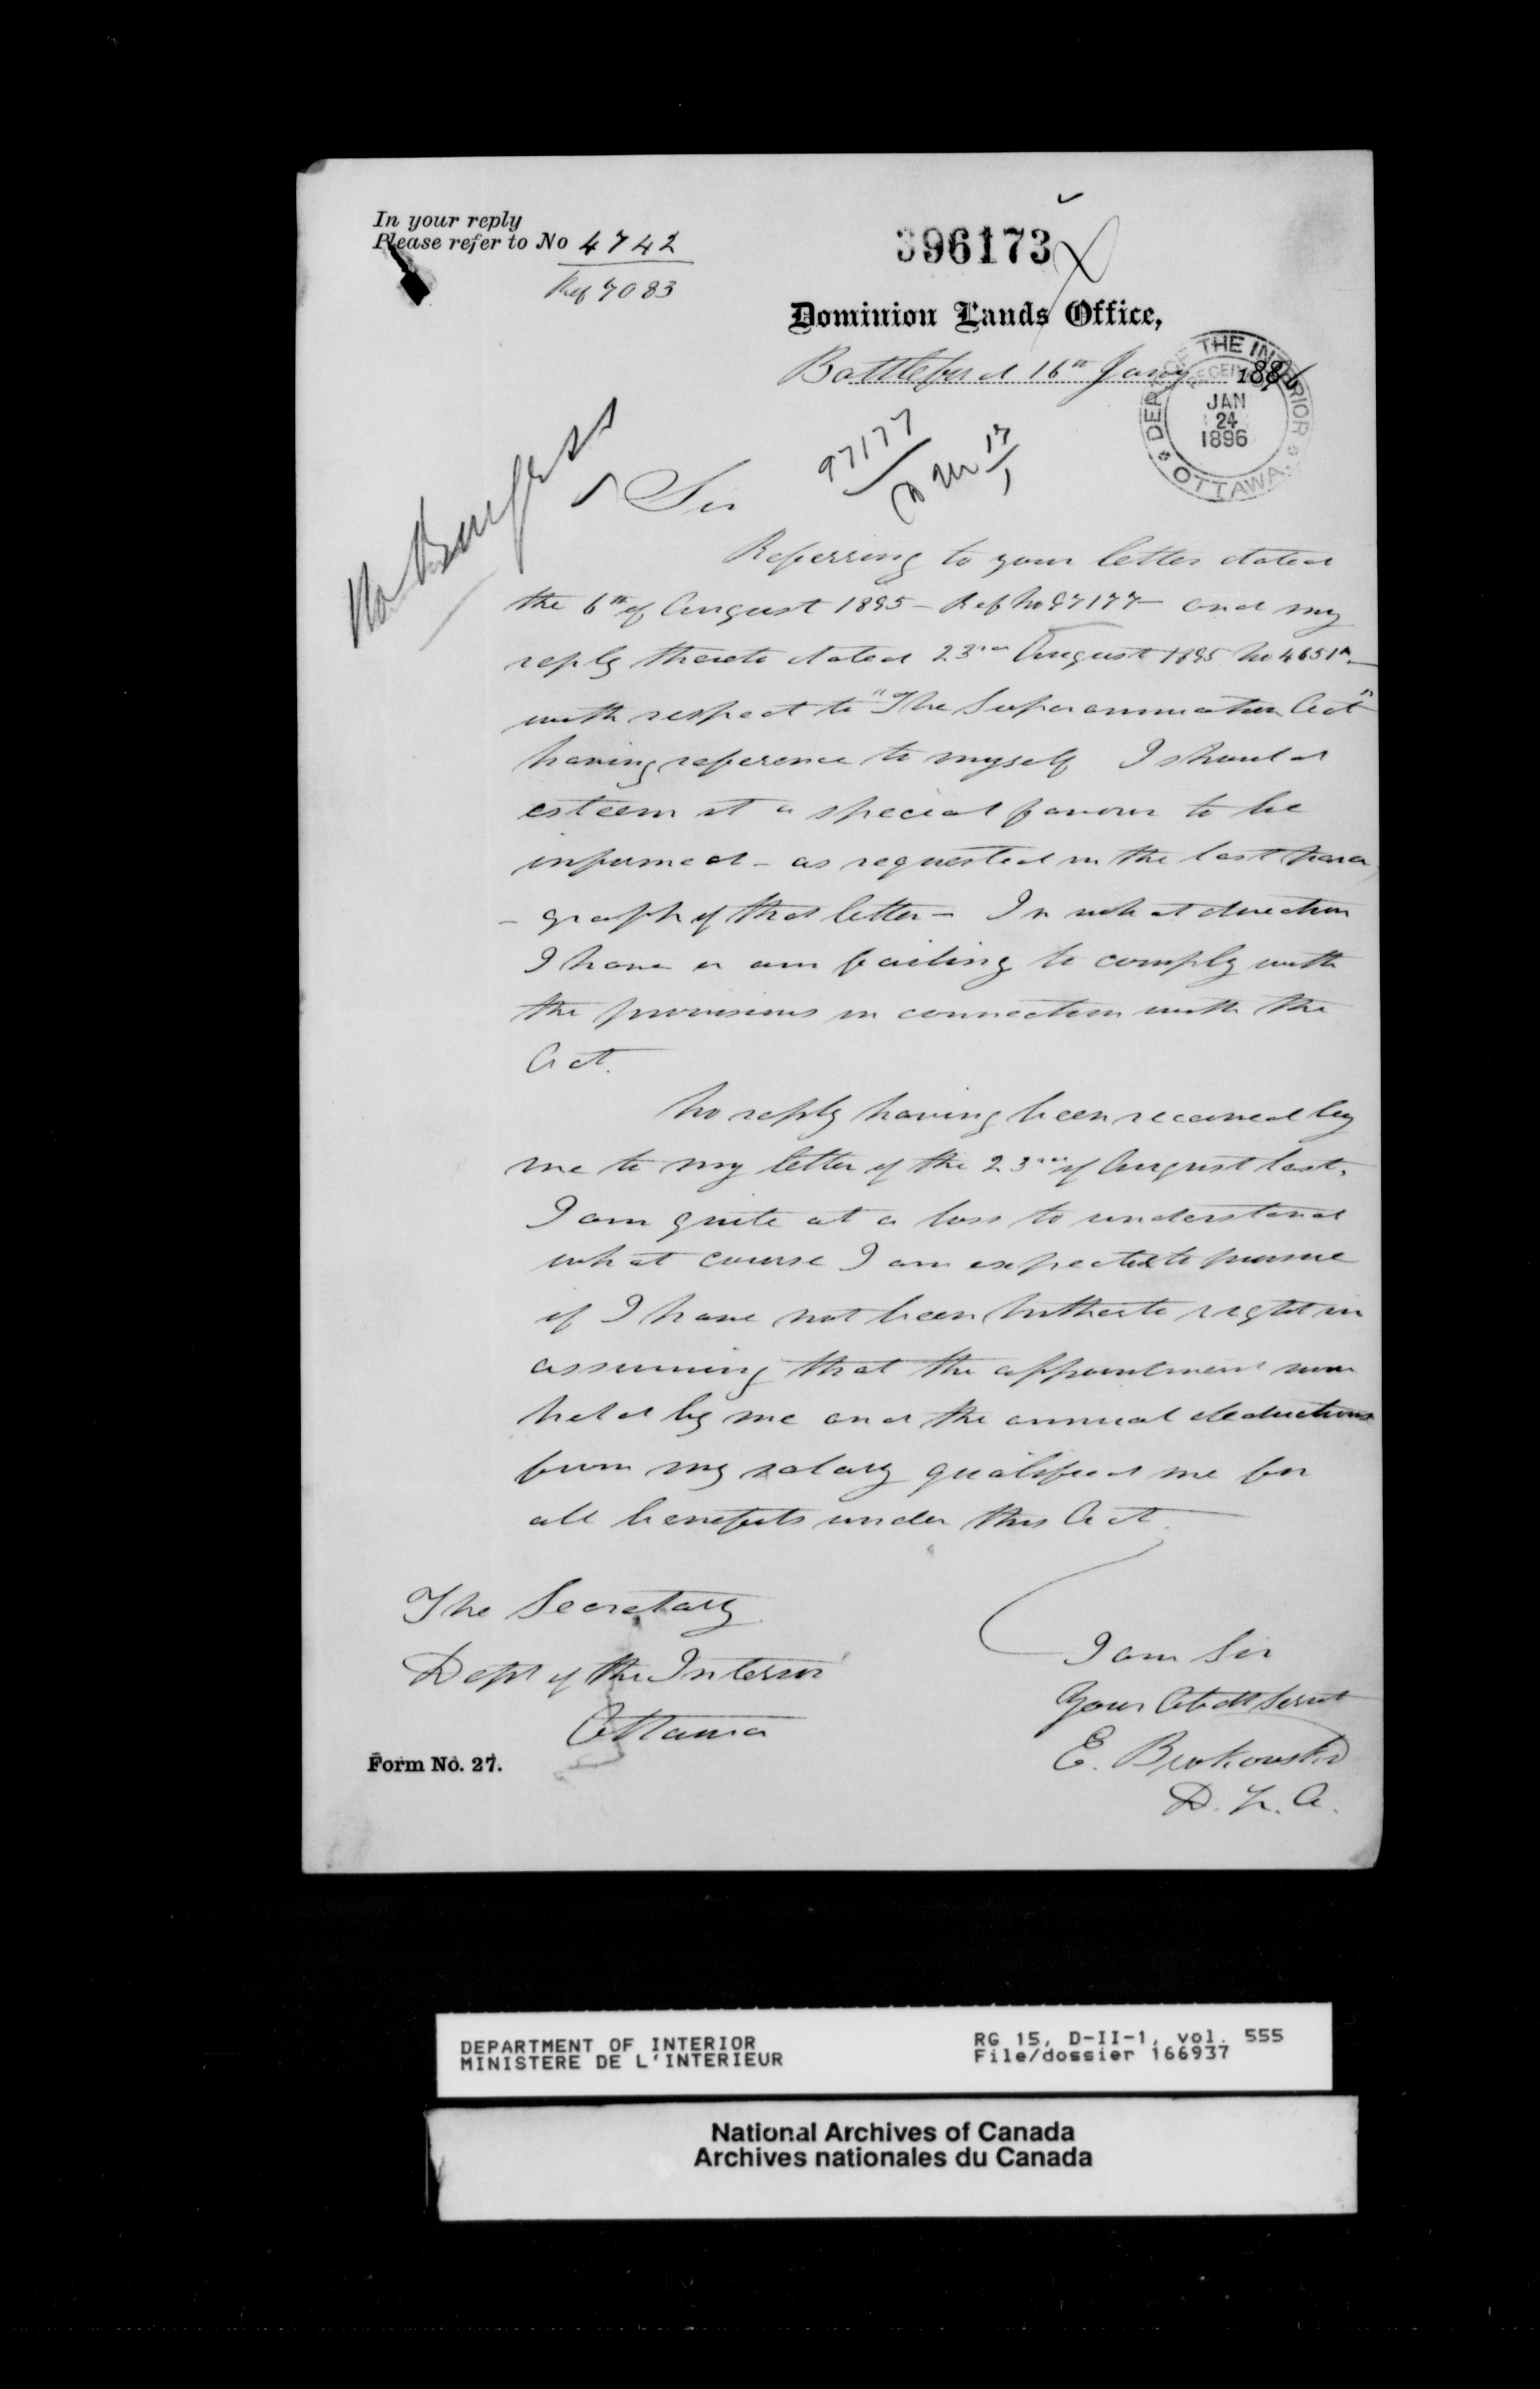 In your reply
Please refer to No 4742
Ref 7083
396173
Dominion Lands Office,
Battleford 16th Jany 1886
DEPT OF THE INTERIOR
RECEIVED
JAN
24
1896
OTTAWA
97177
Mr Burgess
Sir
Referring to your letter dated
the 6th of August 1895 - Ref No 97177 - and my
reply thereto dated 23rd August 1895 No 4651
with respect to "The Superannuation Act"
having reference to myself I should
esteem it a special favour to be
informed - as requested in the last para
- graph of that letter - In what direction
I have or am failing to comply with
the provisions in connection with the
Act.
No reply having been received by
me to my letter of the 23rd of August last,
I am quite at a loss to understand
what course I am expected to pursue
if I have not been hitherto right in
assuming that the appointment now
held by me and the annual deductions
from my salary qualified me for
all benefits under this Act.
The Secretary
Dept of the Interior
Ottawa
I am Sir
Your Obedt Servt
E. Brokovski
D. L. A.
Form No. 27.
DEPARTMENT OF INTERIOR
MINISTERE DE L'INTERIEUR
RG 15, D-II-1, vol. 555
File/dossier 166937
National Archives of Canada
Archives nationales du Canada